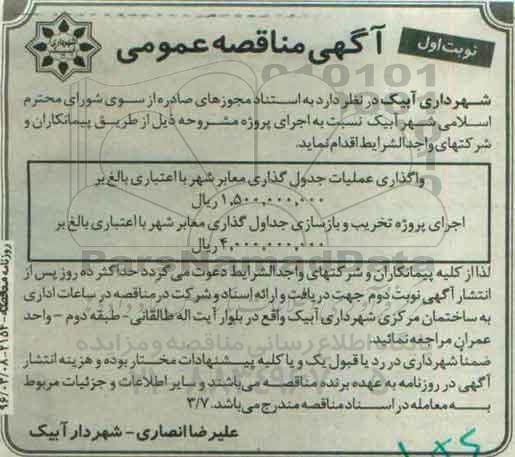 نوبت اول
آگهی مناقصه عمومی
شهرداری آبیک
شهرداری آبیک در نظر دارد به استناد مجوزهای صادره از سوی شورای محترم
اسلامی شهر آبیک نسبت به اجرای پروژه مشروحه ذیل از طریق پیمانکاران و
شرکتهای واجدالشرایط اقدام نماید.
واگذاری عملیات جدول گذاری معابر شهر با اعتباری بالغ بر
۱,۵۰۰,۰۰۰,۰۰۰ ریال
اجرای پروژه تخریب و بازسازی جداول گذاری معابر شهر با اعتباری بالغ بر
۴,۰۰۰,۰۰۰,۰۰۰ ریال
لذا از کلیه پیمانکاران و شرکتهای واجدالشرایط دعوت می گردد حداکثر ده روز پس از
انتشار آگهی نوبت دوم جهت دریافت و ارائه اسناد و شرکت در مناقصه در ساعات اداری
به ساختمان مرکزی شهرداری آبیک واقع در بلوار آیت اله طالقانی - طبقه دوم - واحد
عمران مراجعه نمائید.
ضمناً شهرداری در رد یا قبول یک و یا کلیه پیشنهادات مختار بوده و هزینه انتشار
آگهی در روزنامه به عهده برنده مناقصه می باشند و سایر اطلاعات و جزئیات مربوط
به معامله در اسناد مناقصه مندرج می باشد. ۳/۷
علیرضا انصاری - شهردار آبیک
روزنامه مناقصه - ۲۱۵۲ - ۹۶/۰۳/۰۸
ParsNamadData